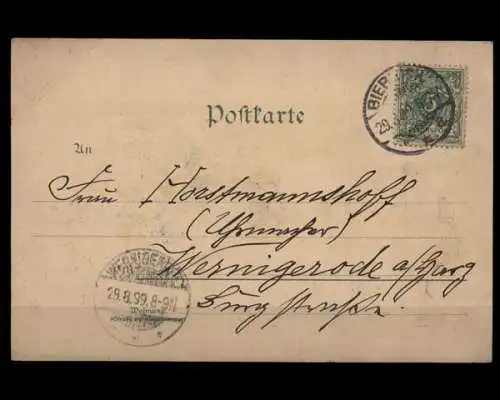 Postkarte
An
Frau Horstmannshoff
(Uhrmacher)
Wernigerode a/Harz
Burgstraße.
29.8.99.8-9N